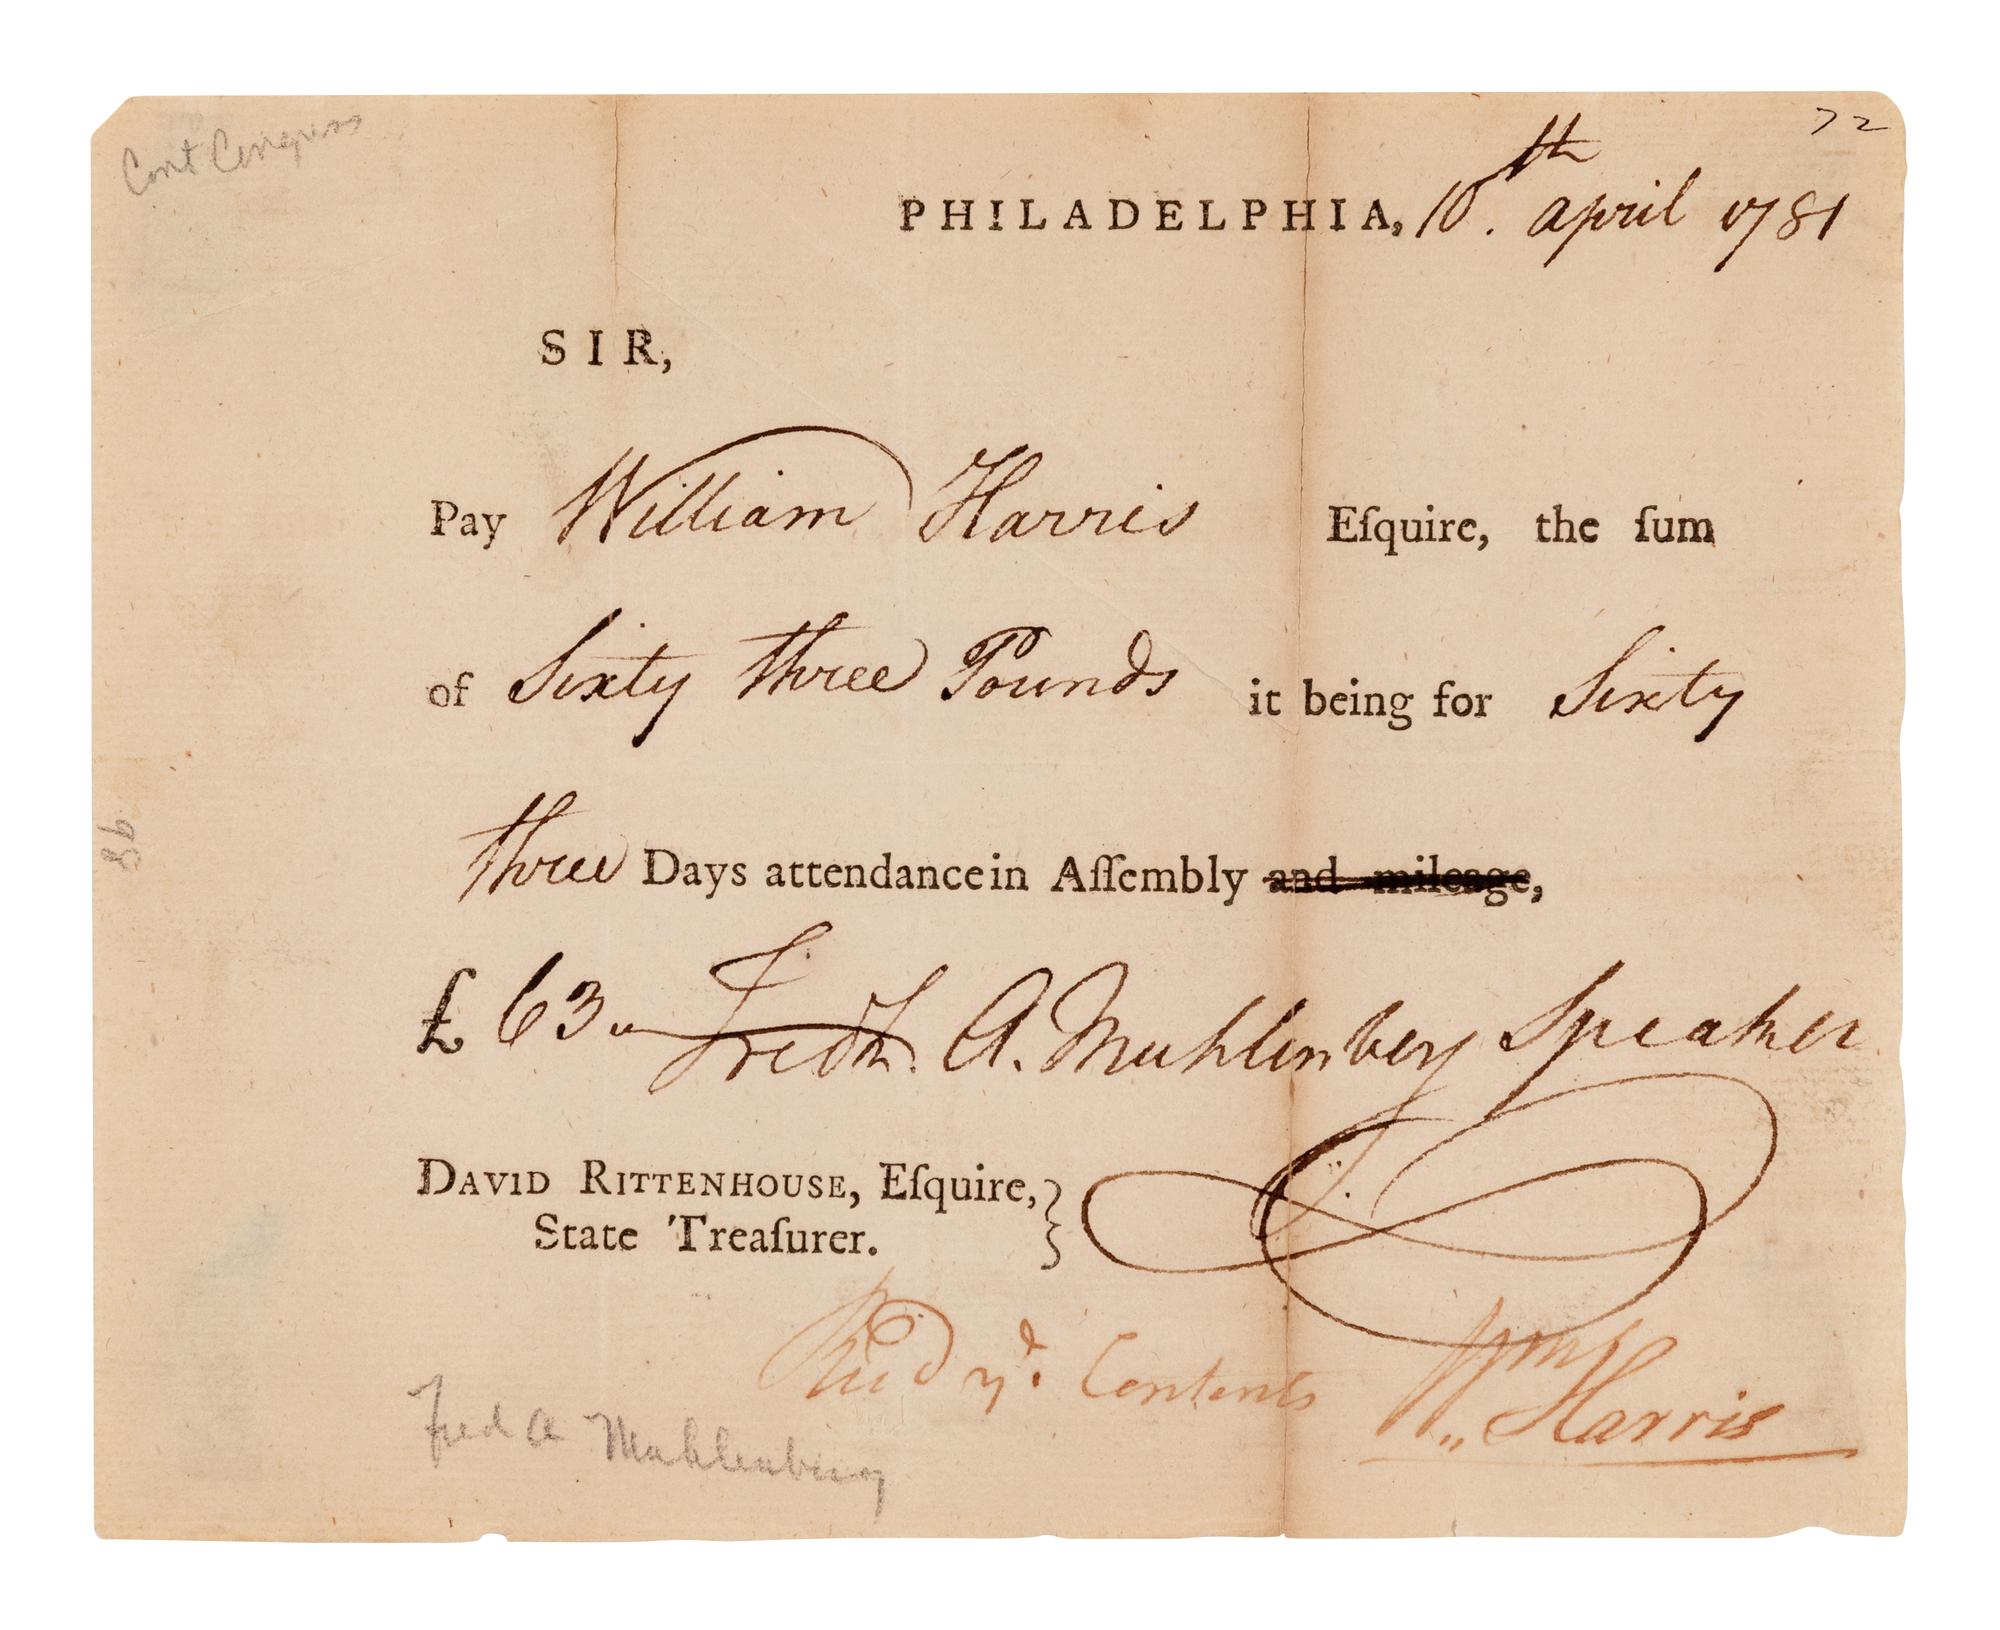 Cont Congress
72
PHILADELPHIA, 10th. april 1781
SIR,
Pay William Harris Eſquire, the ſum
of Sixty three Pounds it being for Sixty
three Days attendance in Aſſembly and mileage,
£ 63 Fredk. A. Muhlenberg Speaker
DAVID RITTENHOUSE, Eſquire,
State Treaſurer.
Recd ye. Contents Wm Harris
Fred A Muhlenberg